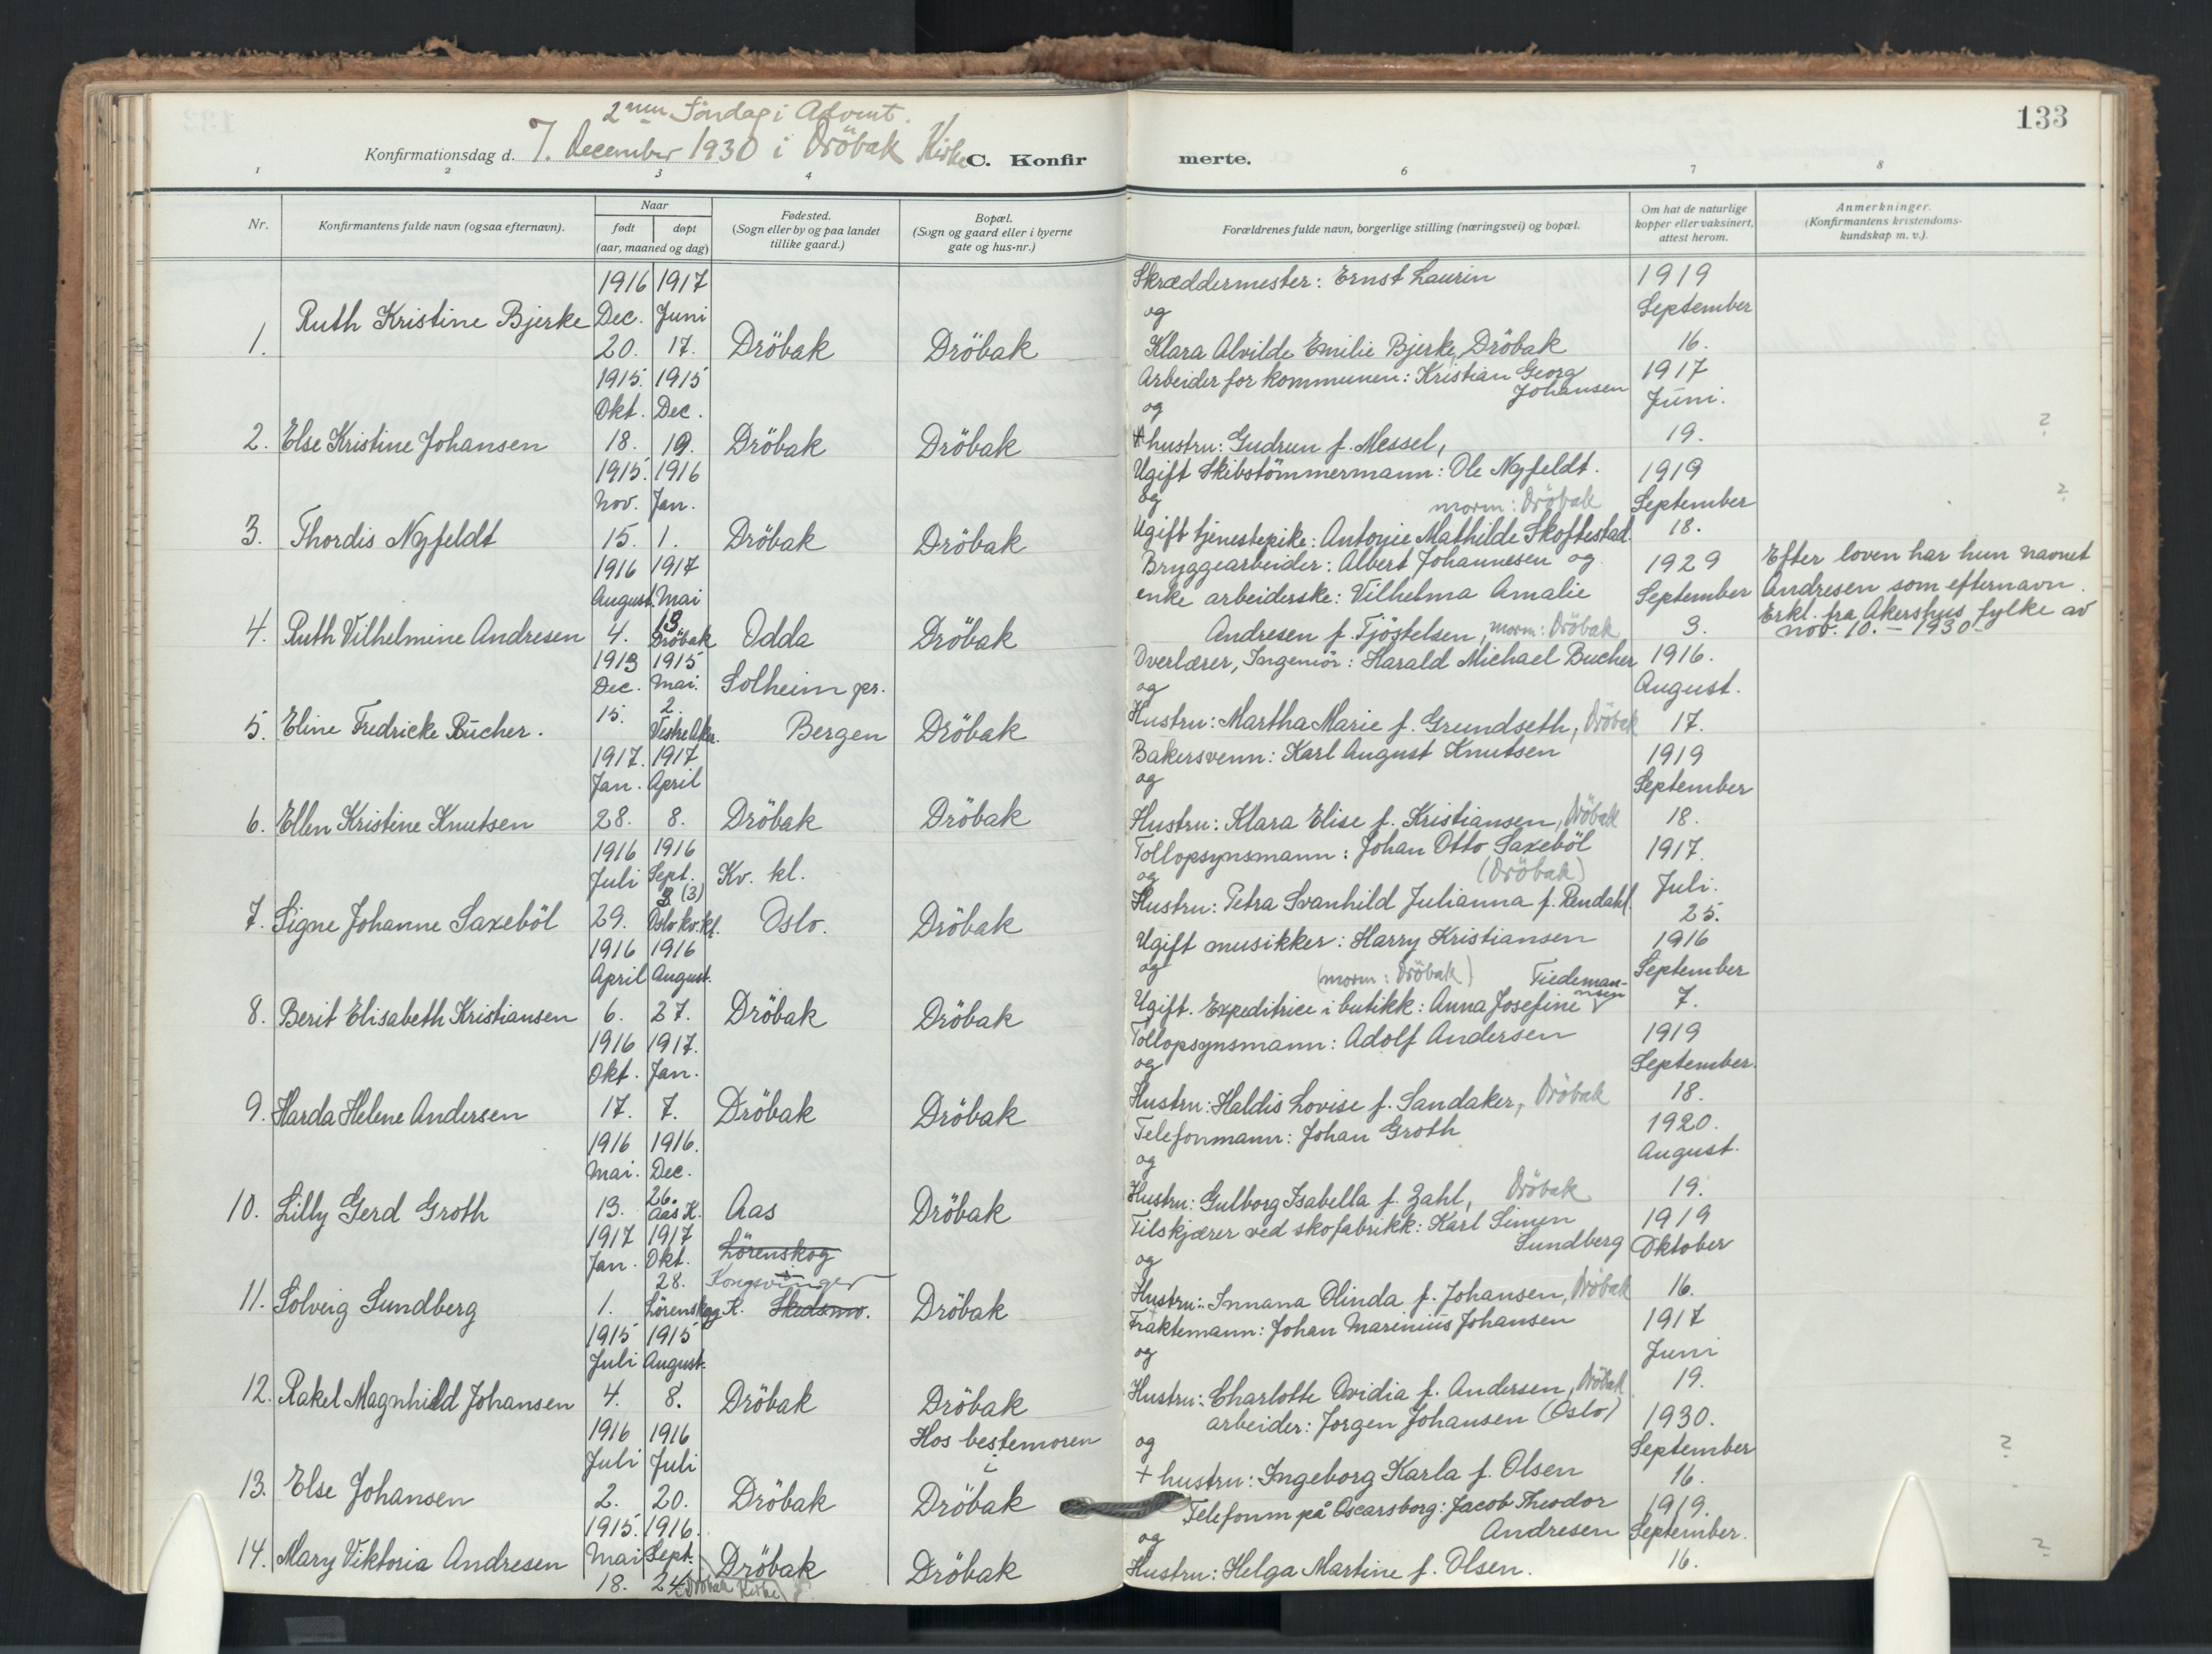 133
2nen Söndag i Advent.
Konfirmationsdag d. 7. December 1930 i Dröbak Kirke C. Konfir merte.
1 2 3 4 6 7 8
Nr.
Konfirmantens fulde navn (ogsaa efternavn).
Naar
født døpt
(aar, maaned og dag)
Fødested.
(Sogn eller by og paa landet
tillike gaard.)
Bopæl.
(Sogn og gaard eller i byerne
gate og hus-nr.)
Forældrenes fulde navn, borgerlige stilling (næringsvei) og bopæl.
Om hat de naturlige
kopper eller vaksinert,
attest herom.
Anmerkninger.
(Konfirmantens kristendoms-
kundskap m. v.).
1. Ruth Kristine Bjerke
1916 1917
Dec. Juni
20. 17.
Dröbak
Dröbak
Skræddermester: Ernst Laurin
og
Klara Alvilde Emilie Bjerke, Dröbak
1919
September
16.
2. Else Kristine Johansen
1915. 1915
Okt. Dec.
18. 19.
Dröbak
Dröbak
Arbeider for kommunen: Kristian Georg
Johansen
og
hustru: Gudrun f. Messel,
1917
Juni.
19.
?
3. Thordis Nyfeldt
1915. 1916
Nov. Jan.
15. 1.
Dröbak
Dröbak
Ugift Skibstömmermann: Ole Nyfeldt.
og
morm: Dröbak
Ugift tjenestepike: Antonie Mathilde Skoftestad.
1919
September
18.
?
4. Ruth Vilhelmine Andresen
1916 1917
August. Mai
4. 13
Dröbak
Odda
Dröbak
Bryggearbeider: Albert Johannesen og
enke arbeiderske: Vilhelma Amalie
Andresen f. Tjöstelsen, morm: Dröbak
1929
September
3.
Efter loven har hun navnet
Andresen som efternavn.
Erkl. fra Akershus fylke av
nov. 10. - 1930.
5. Eline Fredricke Bucher.
1913 1915
Dec. Mai.
15. 2.
Vestre Aker.
Solheim pr.
Bergen
Dröbak
Overlærer, Ingeniör: Harald Michael Bucher
og
Hustru: Martha Marie f. Grundseth, Dröbak
1916.
August.
17.
6. Ellen Kristine Knutsen
1917. 1917
Jan. April
28. 8.
Dröbak
Dröbak
Bakersvenn: Karl August Knutsen
og
Hustru: Klara Elise f. Kristiansen, Dröbak
1919
September
18.
7. Signe Johanne Saxeböl
1916 1916
Juli Sept.
29. 3 (3)
Oslo kv.kl.
Kv. kl.
Oslo.
Dröbak
Tollopsynsmann: Johan Otto Saxeböl
og
(Dröbak)
Hustru: Petra Svanhild Julianna f. Rendahl.
1917.
Juli.
25.
8. Berit Elisabeth Kristiansen
1916 1916
April August.
6. 27.
Dröbak
Dröbak
Ugift musikker: Harry Kristiansen
og
(morm: Dröbak)
Ugift. Expeditrice i butikk: Anna Josefine Tiedeman-
nsen
1916
September
7.
9. Harda Helene Andersen
1916 1917.
Okt. Jan.
17. 7.
Dröbak
Dröbak
Tollopsynsmann: Adolf Andersen
og
Hustru: Haldis Lovise f. Sandaker, Dröbak
1919
September.
18.
10. Lilly Gerd Groth
1916 1916.
Mai. Dec.
13. 26.
Aas K.
Aas
Dröbak
Telefonmann: Johan Groth
og
Hustru: Gulborg Isabella f. Zahl, Dröbak
1920.
August.
19.
11. Solveig Sundberg
1917 1917
Jan. Okt.
1. 28.
Lörenskog K.
Lörenskog
Kongsvinger
Skedsmo.
Dröbak
Tilskjærer ved skofabrikk: Karl Simen
Sundberg
og
Hustru: Innana Olinda f. Johansen, Dröbak
1919
Oktober
16.
12. Rakel Magnhild Johansen
1915 1915
Juli August.
4. 8.
Dröbak
Dröbak
Fraktemann: Johan Marinius Johansen
og
Hustru: Charlotte Ovidia f. Andersen, Dröbak
1917
Juni
19.
13. Else Johansen
1916 1916
Juli Juli
2. 20.
Dröbak
Hos bestemoren
i
Dröbak
arbeider: Jorgen Johansen (Oslo)
og
+ hustru: Ingeborg Karla f. Olsen
1930.
September
16.
?
14. Mary Viktoria Andresen
1915. 1916.
Mai Sept.
18. 24
(Dröbak Kirke)
Dröbak
Dröbak
Telefonm på Oscarsborg: Jacob Theodor
Andresen
og
Hustru: Helga Martine f. Olsen.
1919.
September.
16.
?